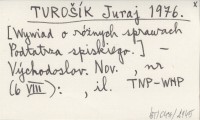 x
TUROŠÍK Juraj 1976.
[Wywiad o różnych sprawach
Podtatrza spiskiego.] –
Východoslov. Nov. , nr
(6 VIII): , il. TNP-WHP